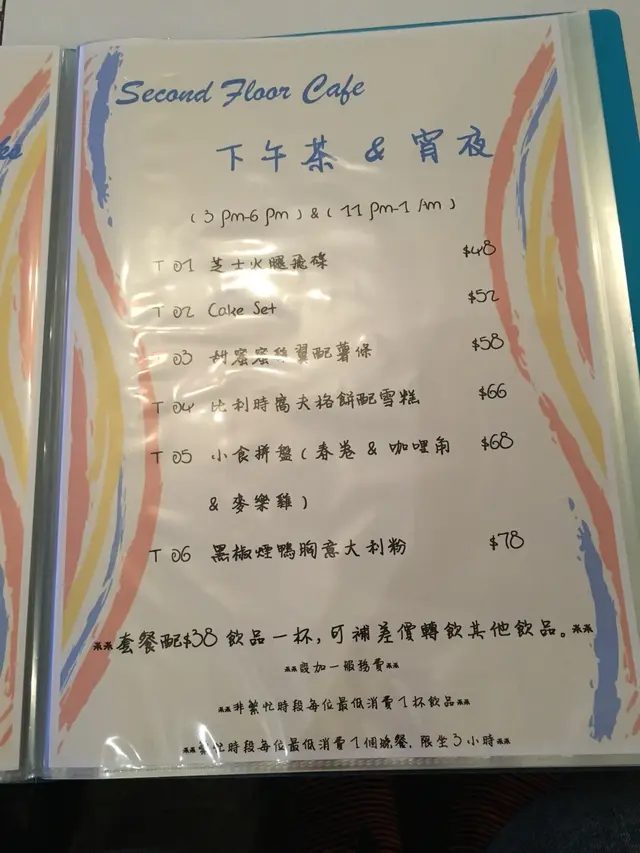 Second Floor Cafe
下午茶 & 宵夜
(3 pm-6 pm) & (11 pm-1 Am)
T 01 芝士火腿飛碟 $48
T 02 Cake Set $52
03 甜蜜蜜 翼配薯條 $58
T 04 比利時窩夫格餅配雪糕 $66
T 05 小食拼盤(春卷 & 咖哩角 $68
& 麥樂雞)
T 06 黑椒煙鴨胸意大利粉 $78
**套餐配$38飲品一杯,可補差價轉飲其他飲品。**
**設加一服務費**
**非繁忙時段每位最低消費1杯飲品**
**繁忙時段每位最低消費1個晚餐,限坐3小時**